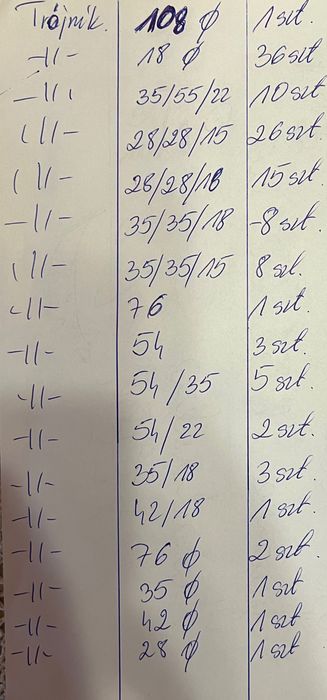 Trójnik. 108 ∅ 1 szt.
-11- 18 ∅ 36szt
-11- 35/55/22 10szt
-11- 28/28/15 26szt.
-11- 28/28/18 15szt.
-11- 35/35/18 -8szt.
-11- 35/35/15 8szt.
-11- 76 1szt.
-11- 54 3szt.
-11- 54/35 5szt.
-11- 54/22 2szt.
-11- 35/18 3szt.
-11- 42/18 1szt.
-11- 76 ∅ 2szt.
-11- 35 ∅ 1szt
-11- 42 ∅ 1szt
-11- 28 ∅ 1szt